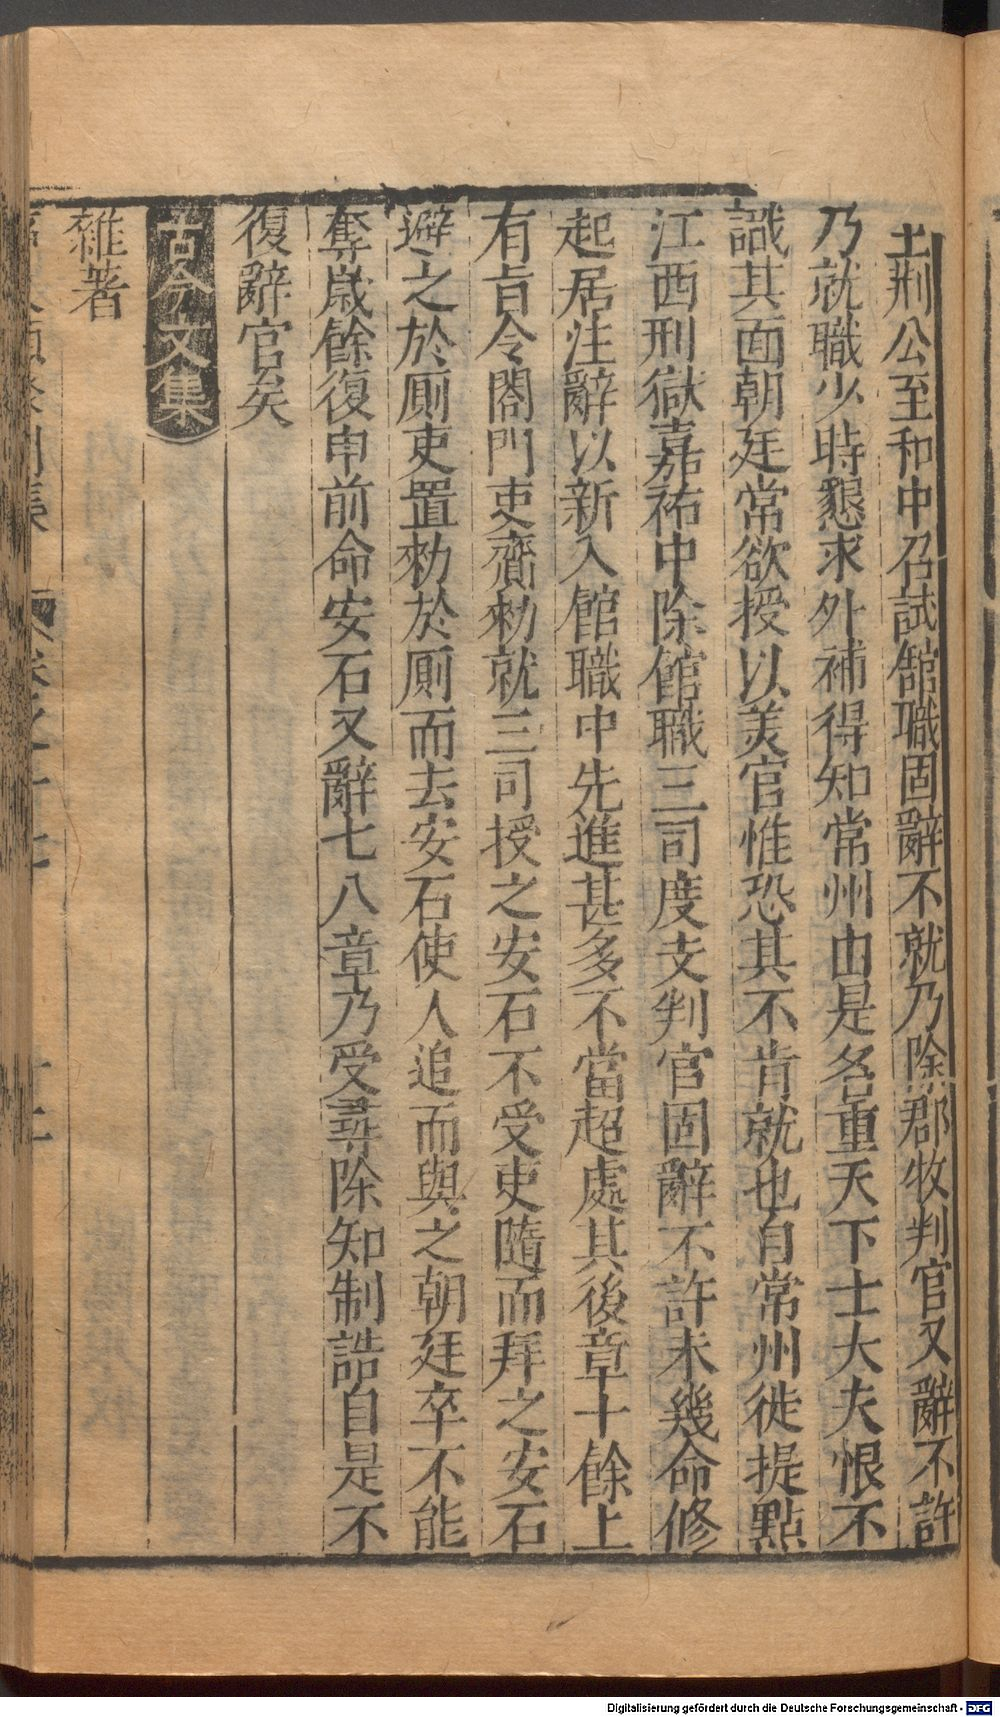 王荆公至和中召試館職固辭不就乃除郡牧判官又辭不許
乃就職少時懇求外補得知常州由是名重天下士大夫恨不
識其面朝廷常欲授以美官惟恐其不肯就也自常州徙提點
江西刑獄嘉祐中除館職三司度支判官固辭不許未幾命修
起居注辭以新入館職中先進甚多不當超處其後章十餘上
有旨令閤門吏齎勑就三司授之安石不受吏隨而拜之安石
避之於厠吏置勑於厠而去安石使人追而與之朝廷卒不能
奪歲餘復申前命安石又辭七八章乃受尋除知制誥自是不
復辭官矣
古今文集
雜著
Digitalisierung gefördert durch die Deutsche Forschungsgemeinschaft - DFG